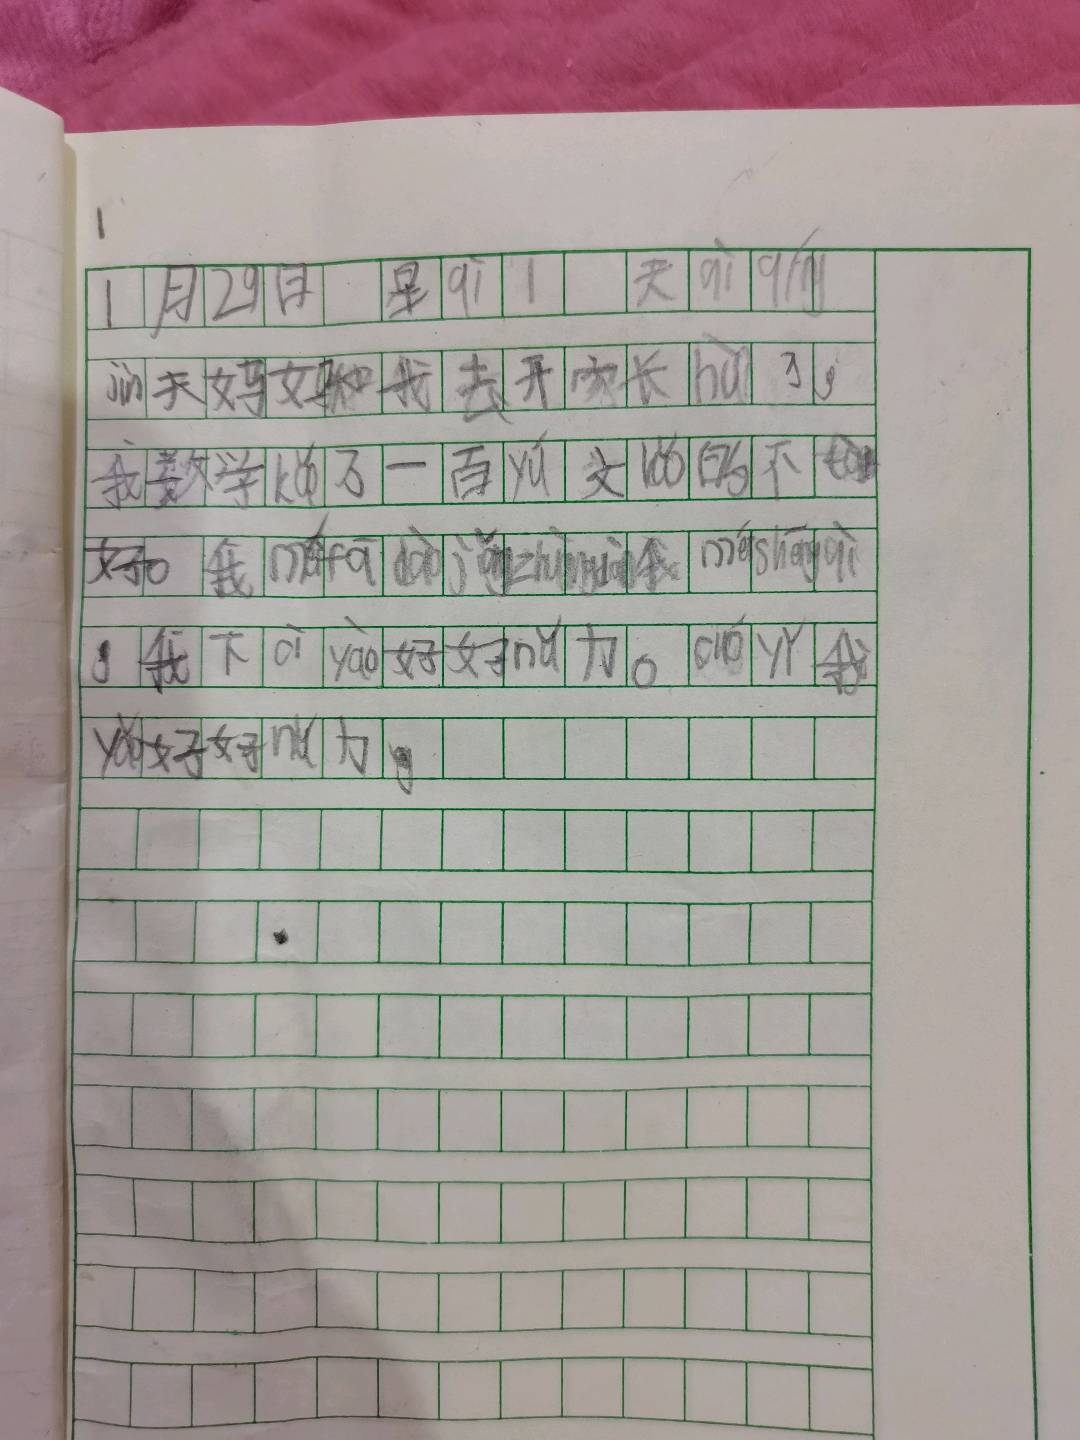 1
1月29日 星qì 1 天qì qíng
jīn天妈妈和我去开家长huì了，
我数学kǎo了一百 yǔ文kǎo的不
好。我méfǎ dào jiǎng我 mé shēng qì
，我下cì yào好好nǔ力。suǒ yǐ 我
yào好好nǔ力。